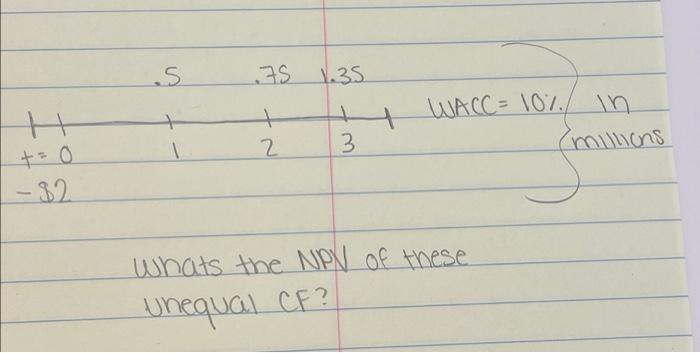 .5 .75 1.35
WACC = 10% in
t= 0 1 2 3 millions
-$2
Whats the NPV of these
unequal CF?